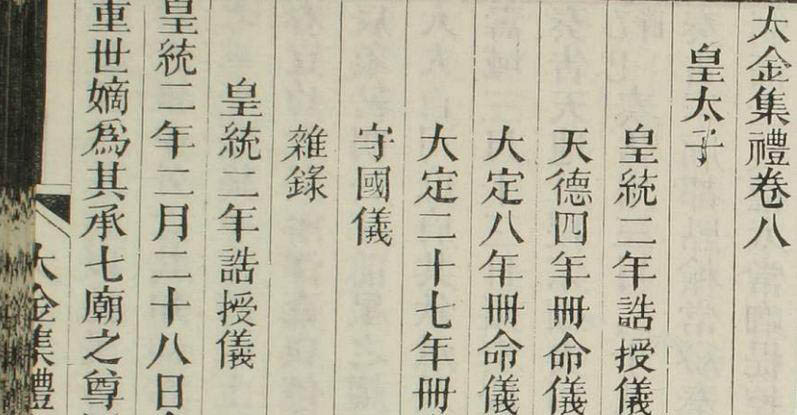 大金集禮卷八
皇太子
皇統二年誥授儀
天德四年冊命儀
大定八年冊命儀
大定二十七年冊
守國儀
雜錄
皇統二年誥授儀
皇統二年二月二十八日
重世嫡為其承七廟之尊
大金集禮